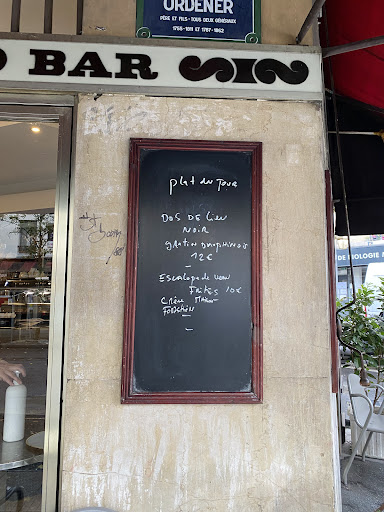 ORDENER
PÈRE ET FILS - TOUS DEUX GÉNÉRAUX
1755-1811 ET 1787-1862
BAR
plat du Jour
DOS DE Lieu
NOIR
gratin dauphinois
12€
Escalope de veau
Frites 10€
Crème
DE BIOLOGIE